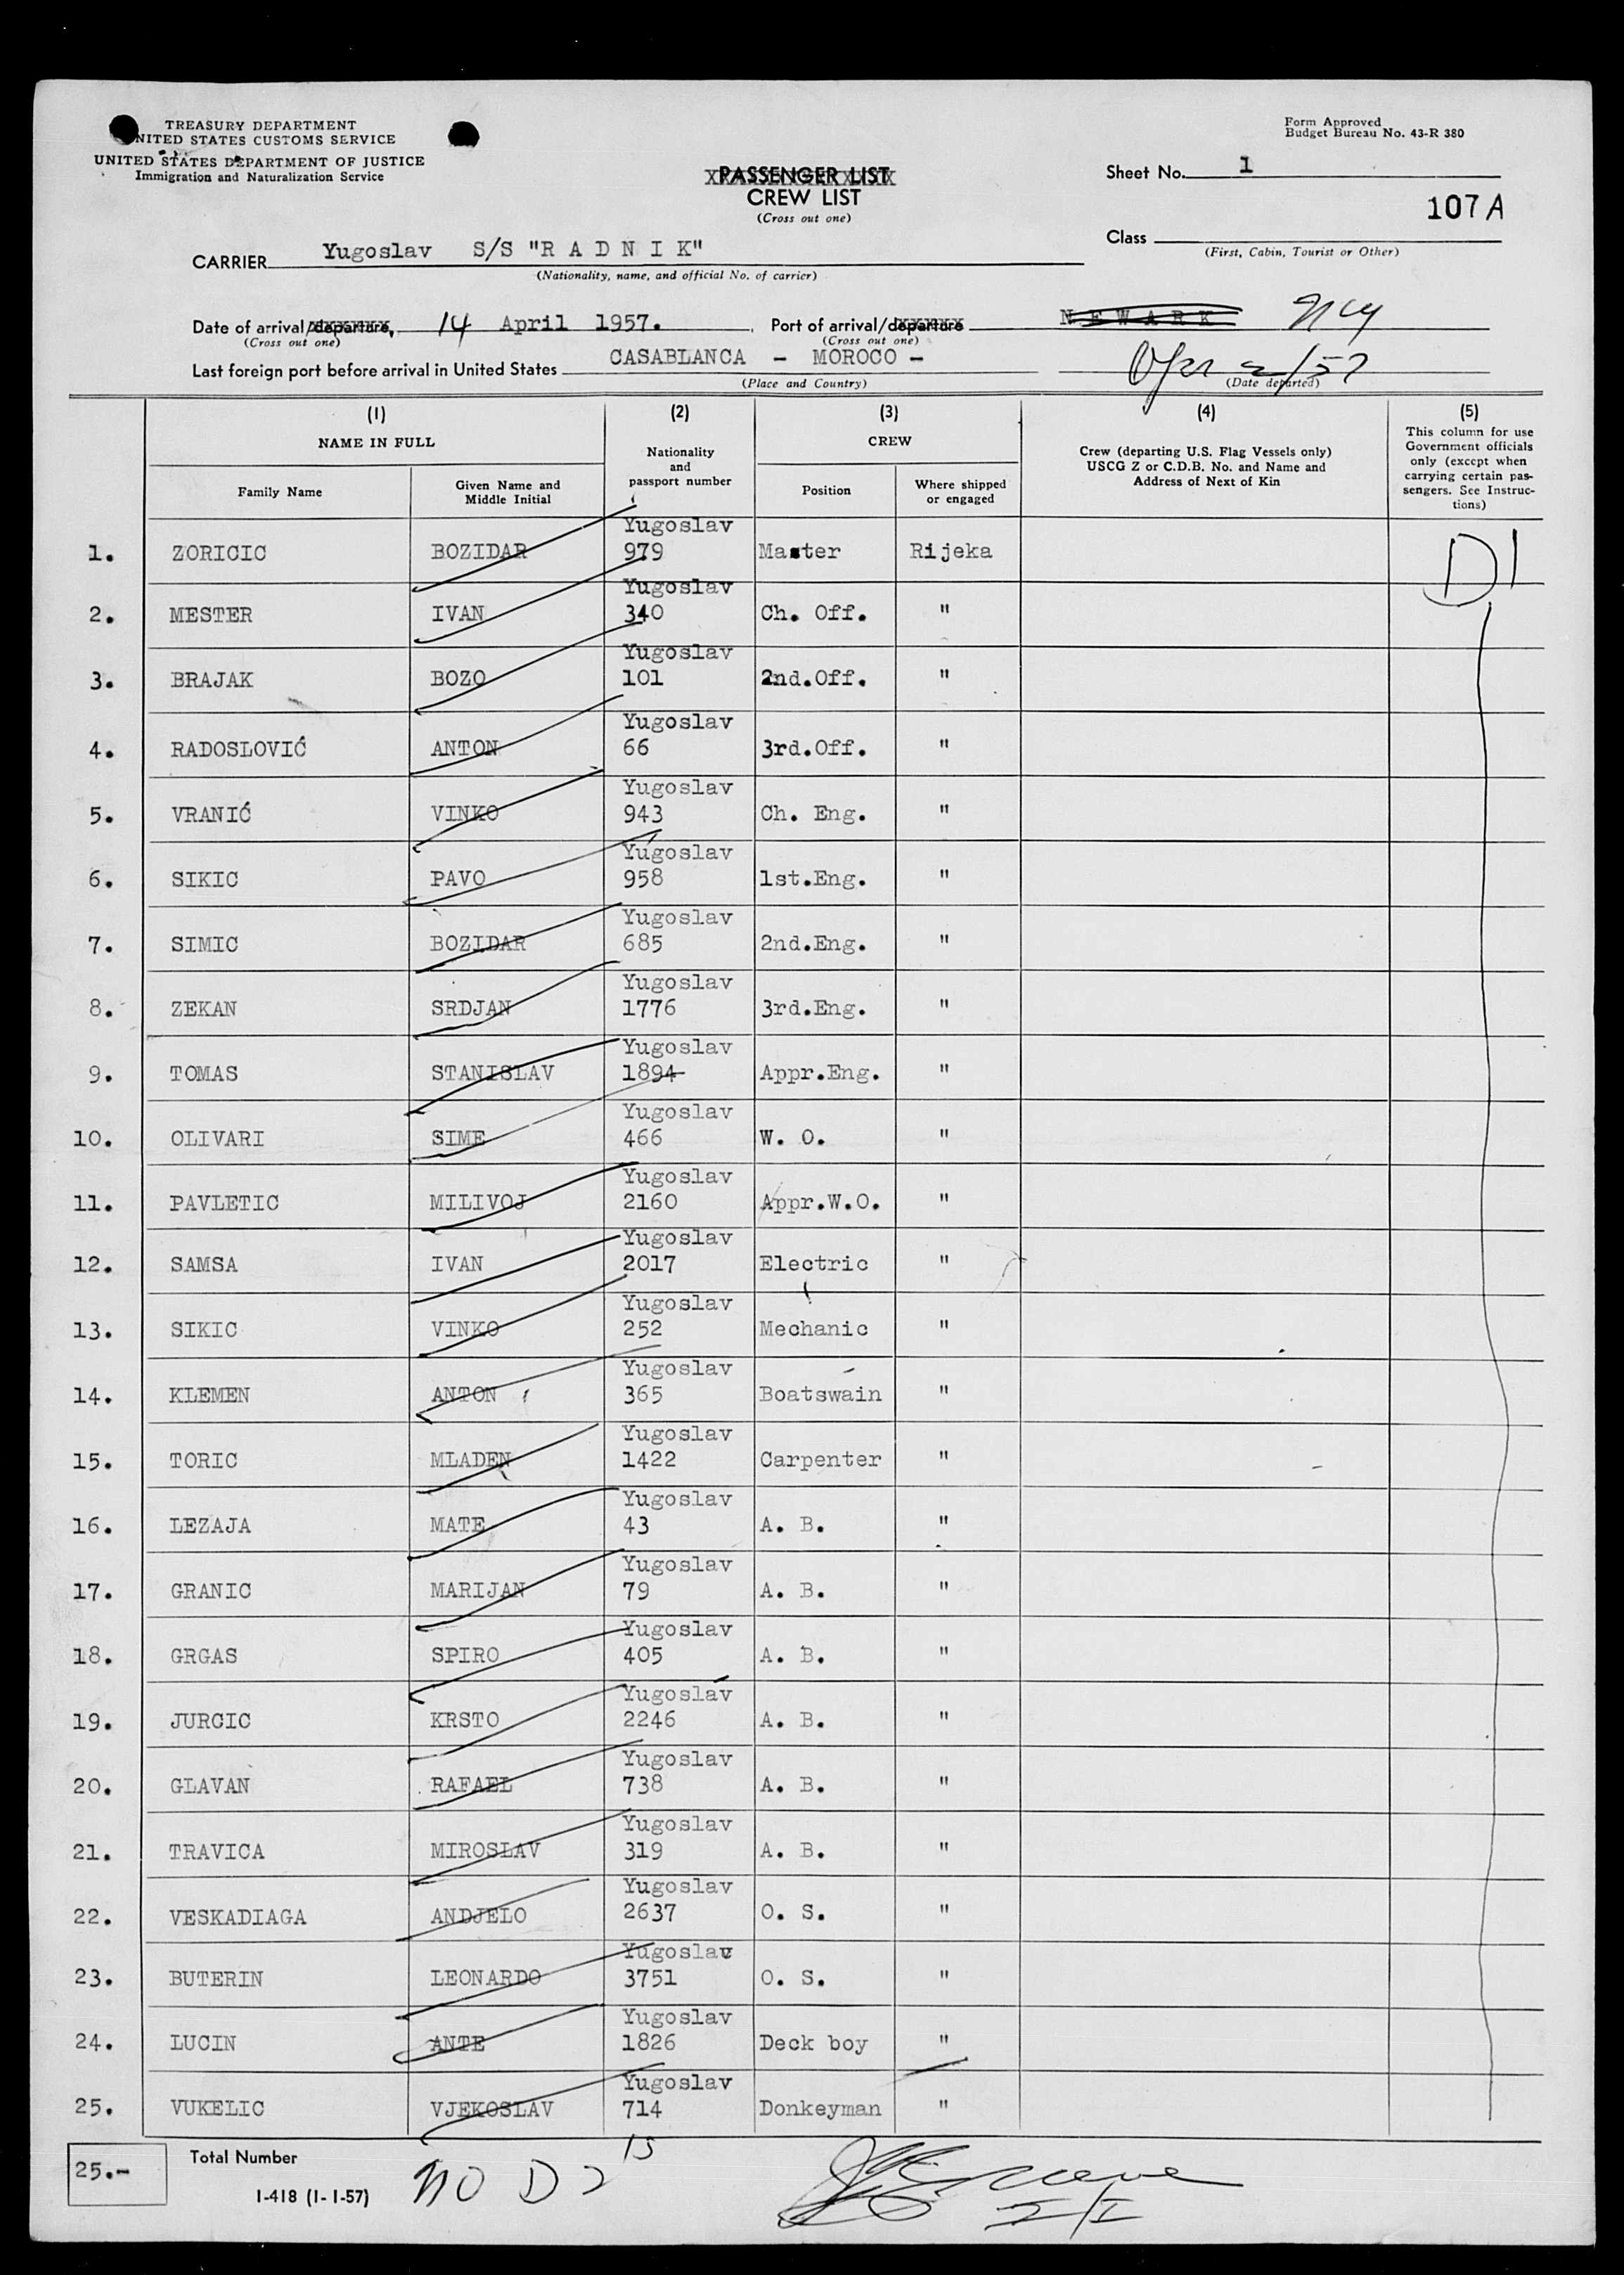 TREASURY DEPARTMENT
UNITED STATES CUSTOMS SERVICE
UNITED STATES DEPARTMENT OF JUSTICE
Immigration and Naturalization Service
Form Approved
Budget Bureau No. 43-R 380
PASSENGER LIST
CREW LIST
(Cross out one)
Sheet No. 1
107A
Class
(First, Cabin, Tourist or Other)
CARRIER Yugoslav S/S "R A D N I K"
(Nationality, name, and official No. of carrier)
Date of arrival/departure, 14 April 1957. Port of arrival/departure NEWARK NCY
(Cross out one) (Cross out one)
Last foreign port before arrival in United States CASABLANCA - MOROCO -
(Place and Country) (Date departed)
(1) (2) (3) (4) (5)
NAME IN FULL
Nationality and passport number
CREW
Crew (departing U.S. Flag Vessels only) USCG Z or C.D.B. No. and Name and Address of Next of Kin
This column for use Government officials only (except when carrying certain passengers. See Instructions)
Family Name Given Name and Middle Initial Position Where shipped or engaged
1. ZORICIC BOZIDAR Yugoslav 979 Master Rijeka D1
2. MESTER IVAN Yugoslav 340 Ch. Off. "
3. BRAJAK BOZO Yugoslav 101 2nd.Off. "
4. RADOSLOVIĆ ANTON Yugoslav 66 3rd.Off. "
5. VRANIĆ VINKO Yugoslav 943 Ch. Eng. "
6. SIKIC PAVO Yugoslav 958 1st.Eng. "
7. SIMIC BOZIDAR Yugoslav 685 2nd.Eng. "
8. ZEKAN SRDJAN Yugoslav 1776 3rd.Eng. "
9. TOMAS STANISLAV Yugoslav 1894 Appr.Eng. "
10. OLIVARI SIME Yugoslav 466 W. O. "
11. PAVLETIC MILIVOJ Yugoslav 2160 Appr.W.O. "
12. SAMSA IVAN Yugoslav 2017 Electric "
13. SIKIC VINKO Yugoslav 252 Mechanic "
14. KLEMEN ANTON Yugoslav 365 Boatswain "
15. TORIC MLADEN Yugoslav 1422 Carpenter "
16. LEZAJA MATE Yugoslav 43 A. B. "
17. GRANIC MARIJAN Yugoslav 79 A. B. "
18. GRGAS SPIRO Yugoslav 405 A. B. "
19. JURCIC KRSTO Yugoslav 2246 A. B. "
20. GLAVAN RAFAEL Yugoslav 738 A. B. "
21. TRAVICA MIROSLAV Yugoslav 319 A. B. "
22. VESKADIAGA ANDJELO Yugoslav 2637 O. S. "
23. BUTERIN LEONARDO Yugoslav 3751 O. S. "
24. LUCIN ANTE Yugoslav 1826 Deck boy "
25. VUKELIC VJEKOSLAV Yugoslav 714 Donkeyman "
25.- Total Number
I-418 (1-1-57) NO D2